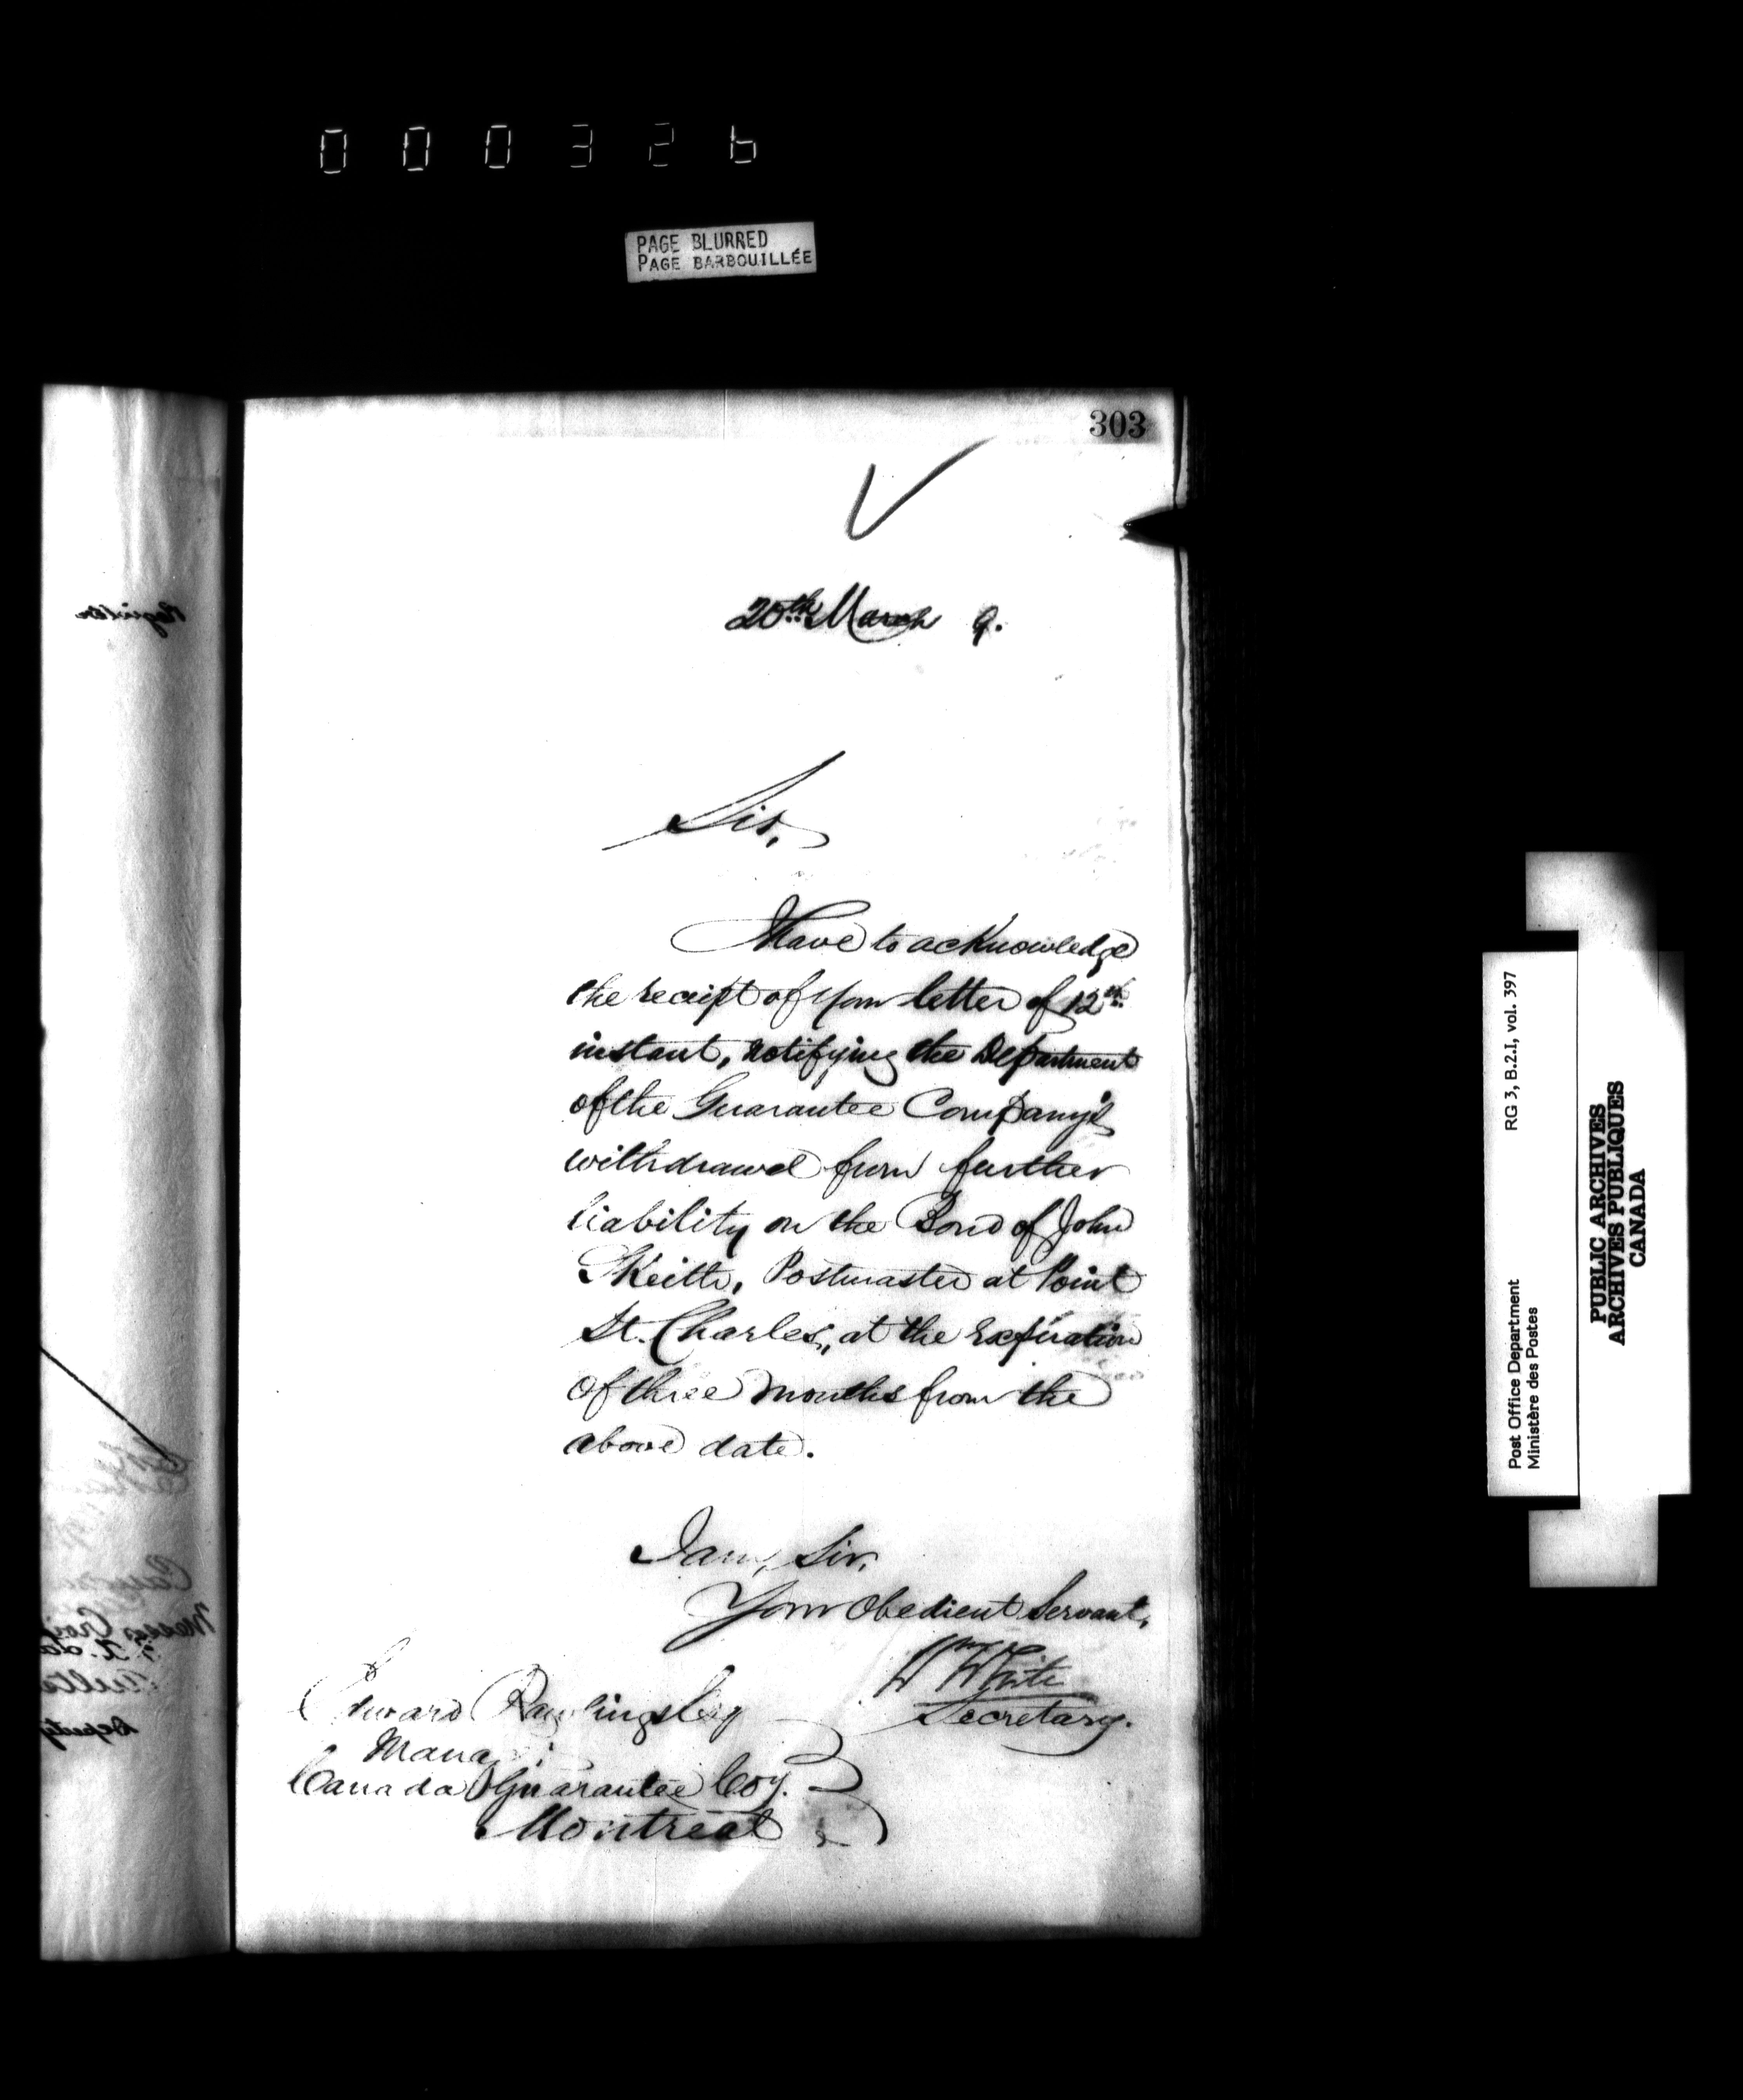 000326
PAGE BLURRED
PAGE BARBOUILLÉE
303
20th March 9.
Sir,
I Have to acknowledge
the receipt of your letter of 12th
instant, notifying the Department
of the Guarantee Company's
withdrawal from further
liability on the Bond of John
Keith, Postmaster at Point
St. Charles, at the expiration
of three months from the
above date.
I am, Sir,
Your Obedient Servant,
Wm White
Secretary.
Edward Rawlings Esq
Mana
Canada Guarantee Coy.
Montreal
Register
Messrs
Deputy
Post Office Department RG 3, B.2.I, vol. 397
Ministère des Postes
PUBLIC ARCHIVES
ARCHIVES PUBLIQUES
CANADA